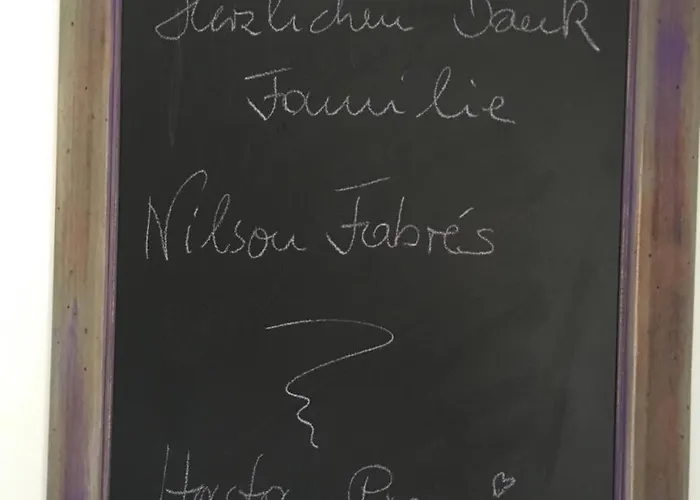 Herzlichen Dank
Familie
Nilson Fabrés